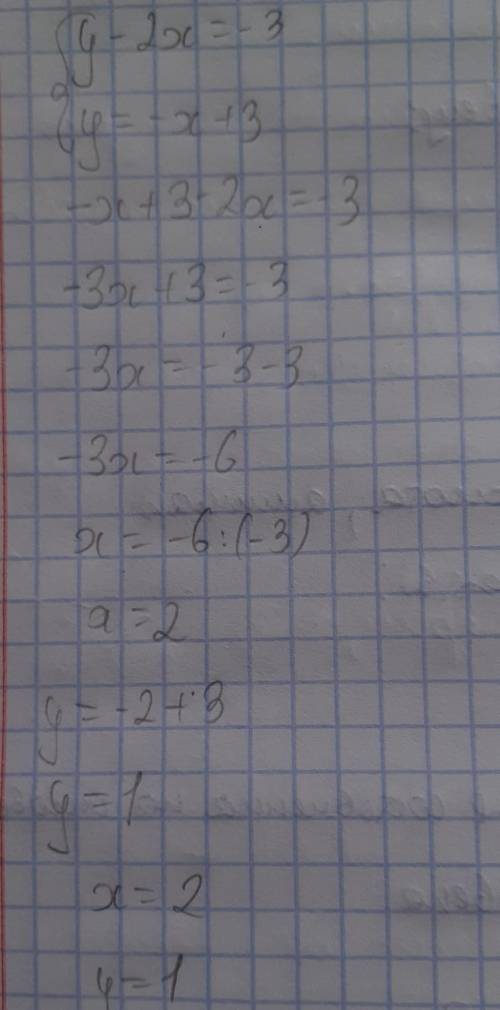 {y - 2x = -3
{y = -x + 3
-x + 3 - 2x = -3
-3x + 3 = -3
-3x = -3 - 3
-3x = -6
x = -6 : (-3)
a = 2
y = -2 + 3
y = 1
x = 2
y = 1